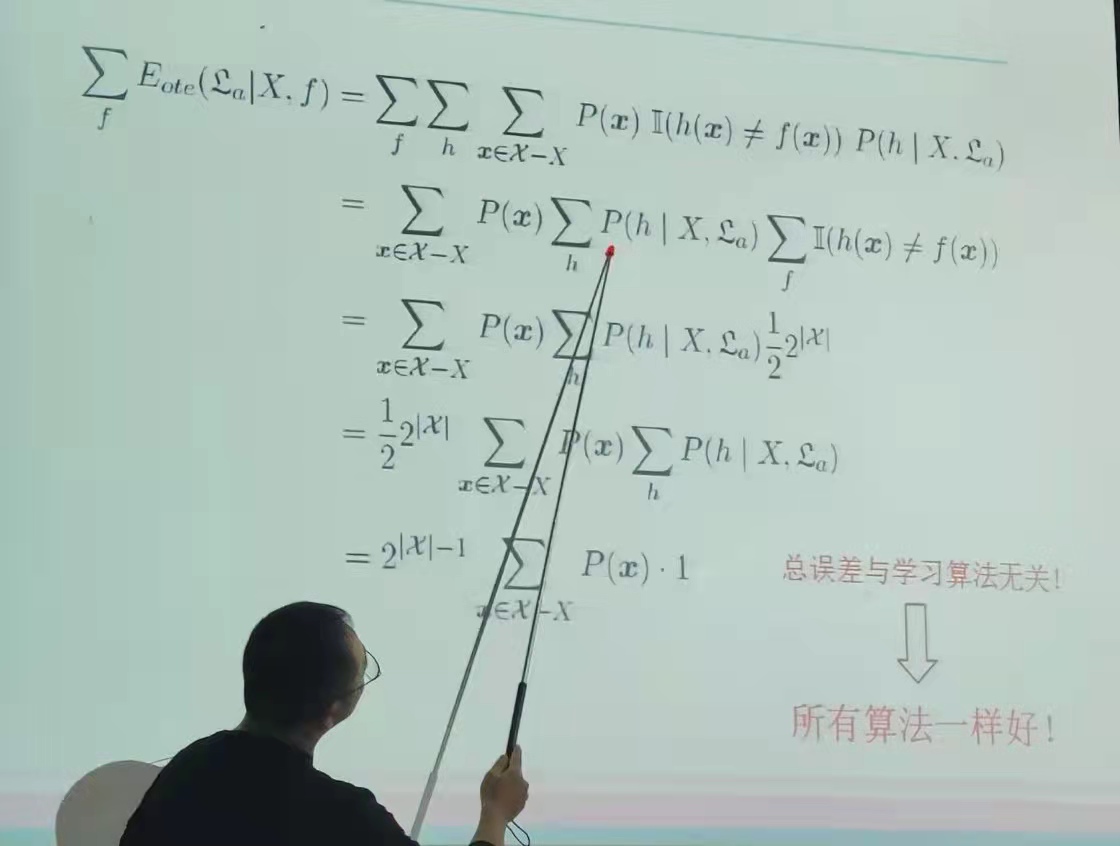 ∑_f E_{ote}(𝔏_a|X, f) = ∑_f ∑_h ∑_{x∈𝒳−X} P(x) 𝕀(h(x) ≠ f(x)) P(h | X, 𝔏_a)
= ∑_{x∈𝒳−X} P(x) ∑_h P(h | X, 𝔏_a) ∑_f 𝕀(h(x) ≠ f(x))
= ∑_{x∈𝒳−X} P(x) ∑_h P(h | X, 𝔏_a) \frac{1}{2} 2^{|𝒳|}
= \frac{1}{2} 2^{|𝒳|} ∑_{x∈𝒳−X} P(x) ∑_h P(h | X, 𝔏_a)
= 2^{|𝒳|−1} ∑_{x∈𝒳−X} P(x) · 1
总误差与学习算法无关!
所有算法一样好!